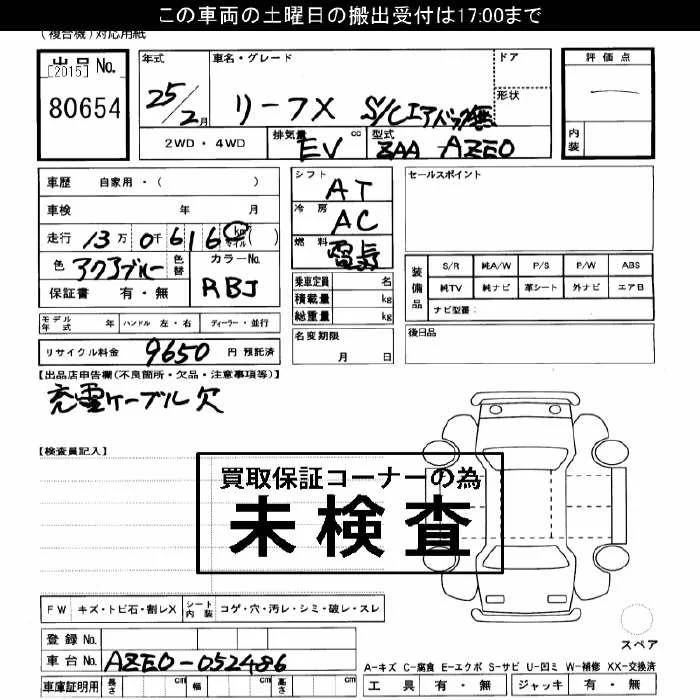 この車両の土曜日の搬出受付は17:00まで
(複合機)対応用紙
出品No.
[2015]
80654
年式
25/2月
車名・グレード
リーフX S/Cエアバック無
ドア
形状
評価点
内装
2WD・4WD
排気量 EV cc
型式 ZAA AZE0
車歴 自家用・( )
車検 年 月
走行 13万 0千 616 km マイル ( )
色 アクアブルー 色替
カラーNo. RBJ
保証書 有・無
シフト AT
冷房 AC
燃料 電気
乗車定員 名
積載量 kg
総重量 kg
セールスポイント
装備品
S/R 純A/W P/S P/W ABS
純TV 純ナビ 革シート 外ナビ エアB
ナビ型番:
モデル年式 年 ハンドル 左・右 ディーラー・並行
名変期限
月 日
後日品
リサイクル料金 9650 円 預託済
【出品店申告欄(不良箇所・欠品・注意事項等)】
充電ケーブル欠
【検査員記入】
買取保証コーナーの為
未検査
FW キズ・トビ石・割レX シート内装 コゲ・穴・汚レ・シミ・破レ・スレ
スペア
登録No.
車台No. AZE0-052486
A-キズ C-腐食 E-エクボ S-サビ U-凹ミ W-補修 XX-交換済
車庫証明用 長さ cm 幅 cm 高さ cm
工具 有・無 ジャッキ 有・無